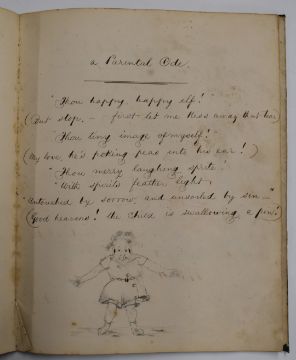 a Parental Ode.
"Thou happy, happy elf!
(But stop, – first let me kiss away that tear)
"Thou tiny image of myself!
(My love, he's poking peas into his ear!)
"Thou merry laughing sprite!
"With spirits feather light,
"Untouched by sorrow, and unsoiled by sin –"
(Good heavens! the child is swallowing a pin!)